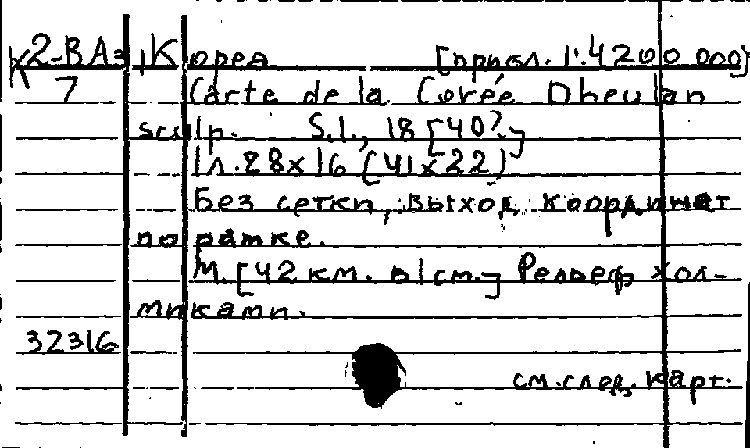 К2-ВАз Корея [прибл. 1:4200 000]
7 Carte de la Corée Dheulan
sculp. S.l., 18[40?]
1л. 28х16 (41х22)
Без сетки, выход координат
по рамке.
М. [42 км. в 1см.] Рельеф хол-
миками.
32316
см. след. карт.